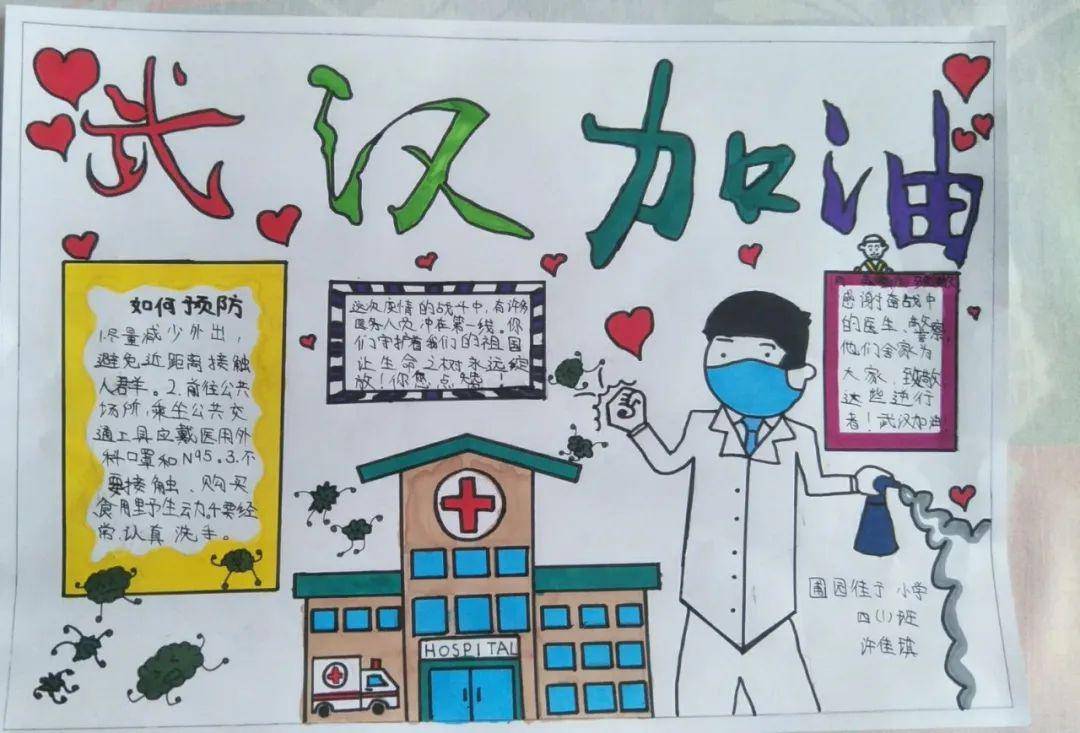 武汉加油
如何预防
1.尽量减少外出,
避免近距离接触
人群。2.前往公共
场所,乘坐公共交
通工具应戴医用外
科口罩和N95。3.不
要接触、购买
食用野生动 要经
常、认真洗手。
这次疫情的战斗中,有许多
医务人员冲在第一线。你
们守护着我们的祖国
让生命之树永远绽
放!你 点赞!
感谢奋战中
的医生、警察,
他们舍家为
大家,致敬
这些逆行
者!武汉加油!
HOSPITAL
园佳予 小学
四(1)班
许佳琪